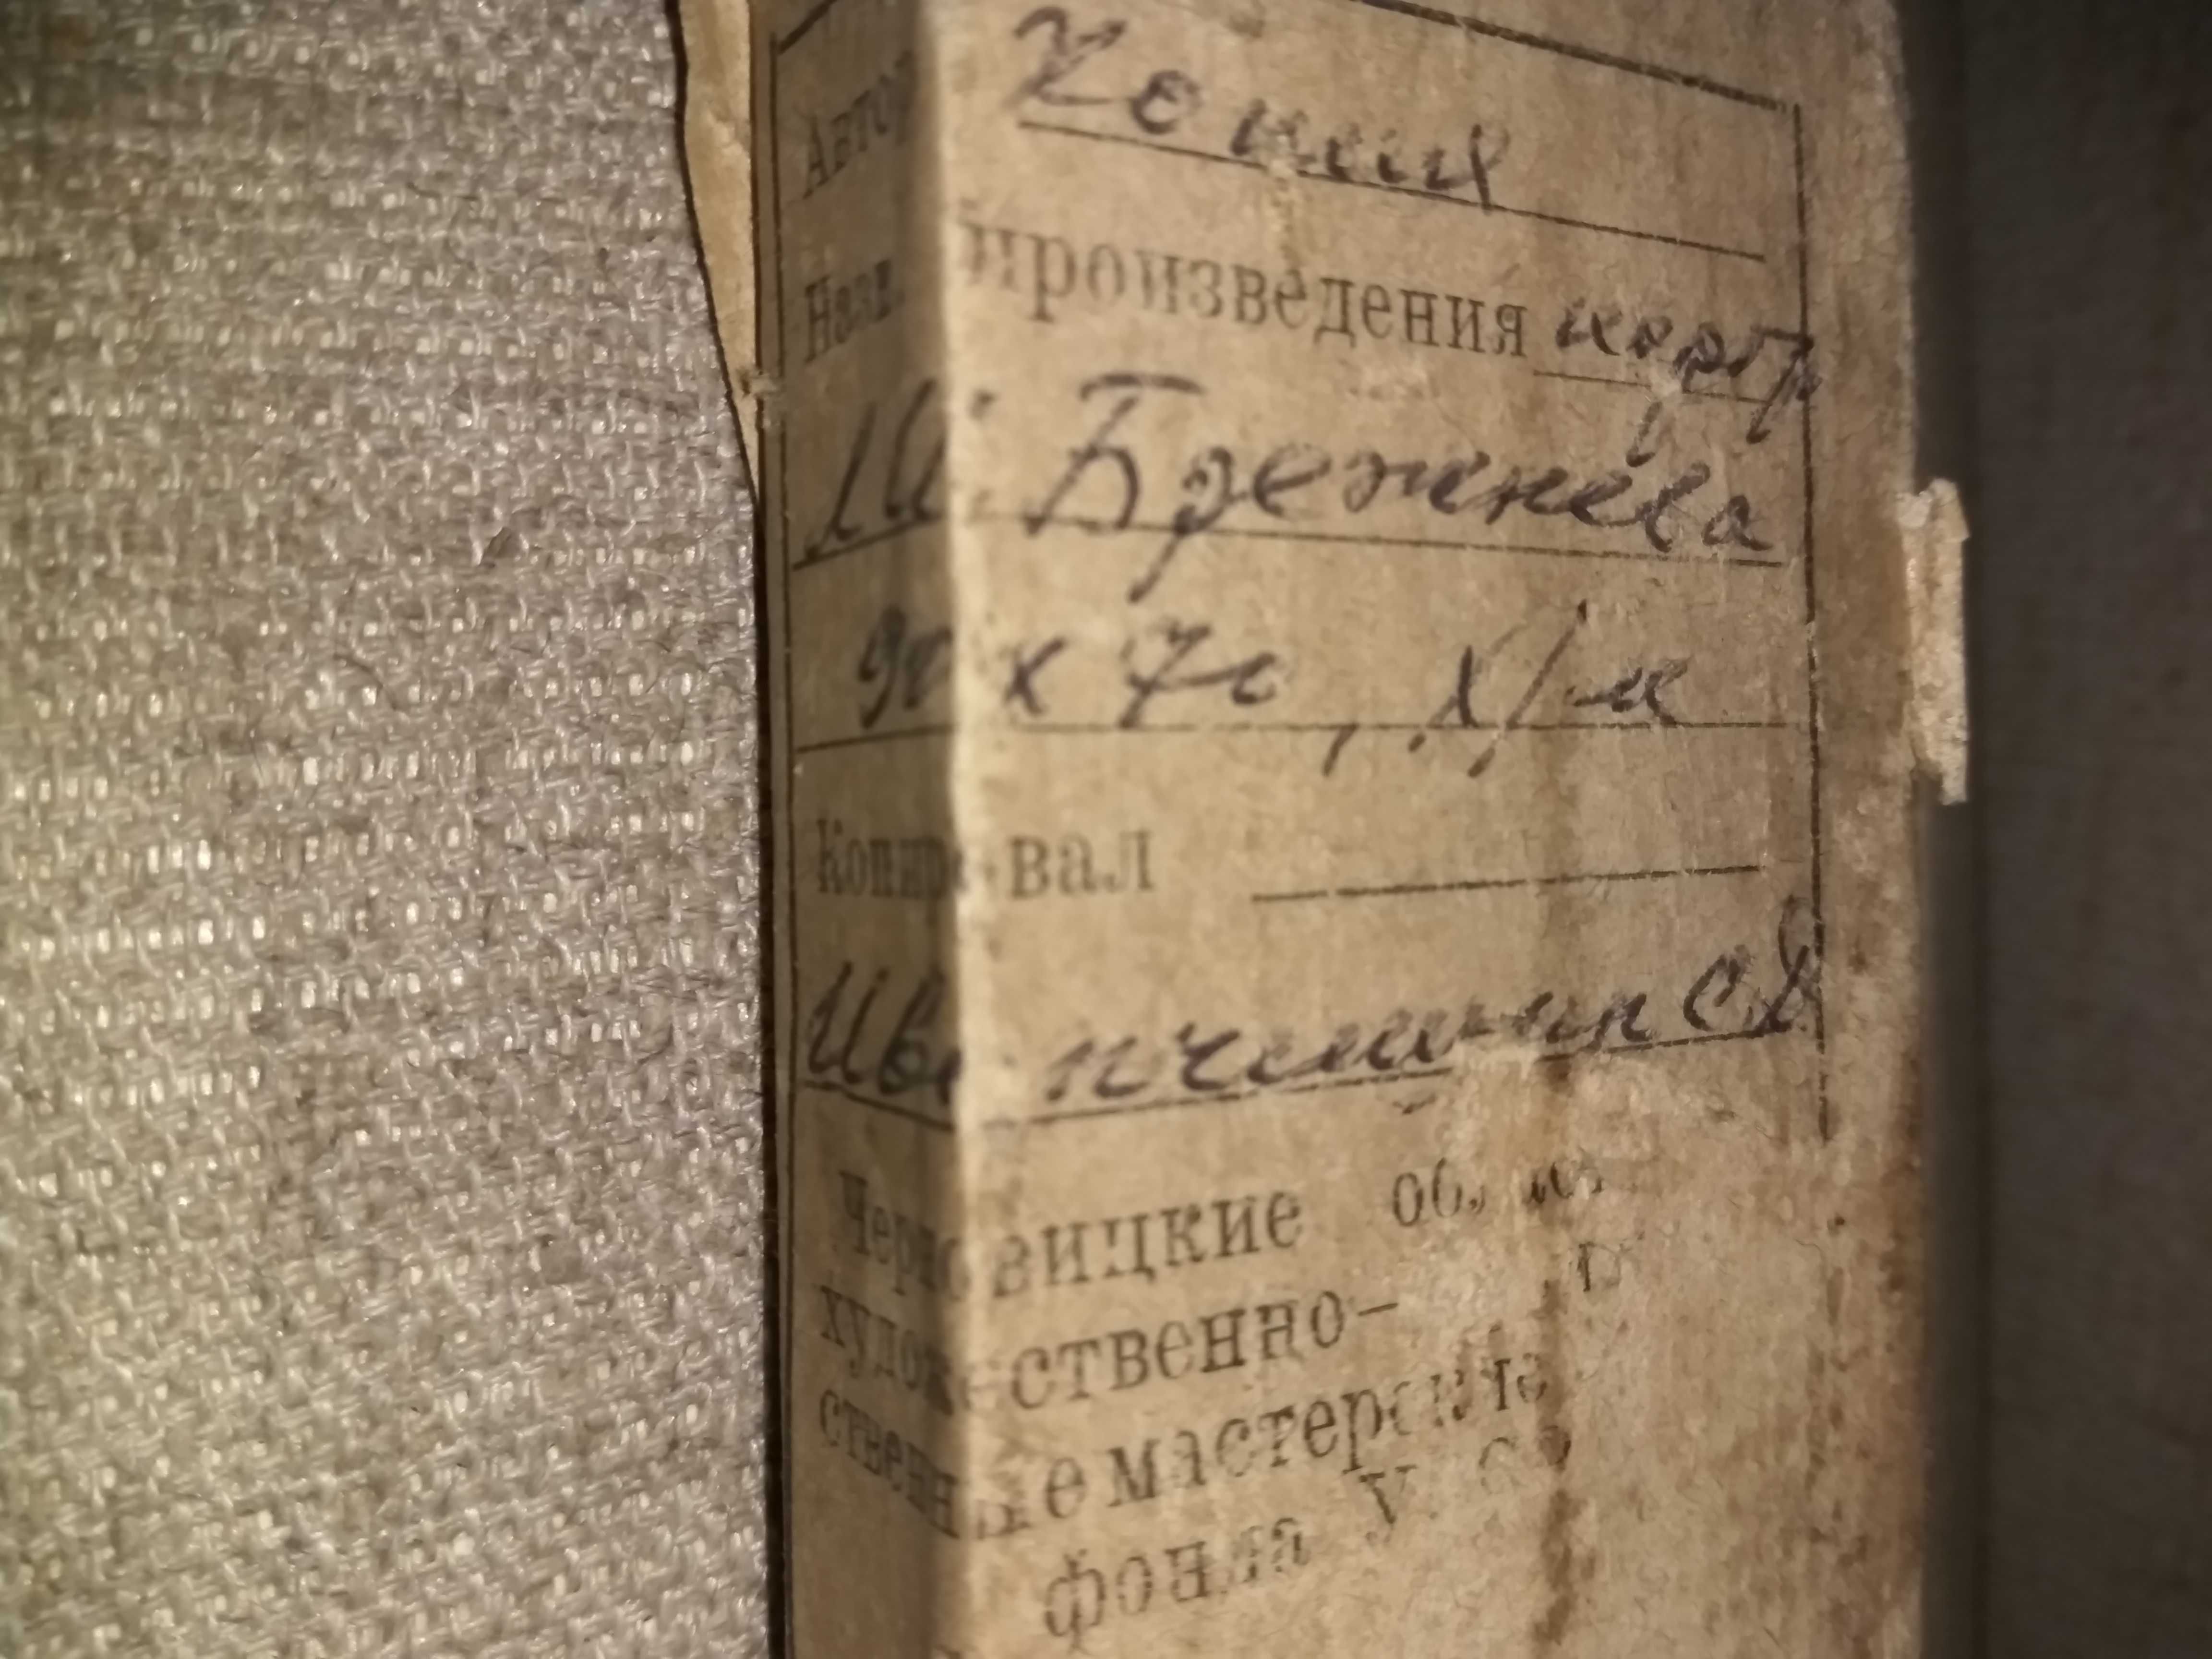 Автор Копия
произведения портр.
Брежнева
90 х 70, х/м
Копировал
С.Д.
Черновицкие
художественно-
ственные мастерские
фонда